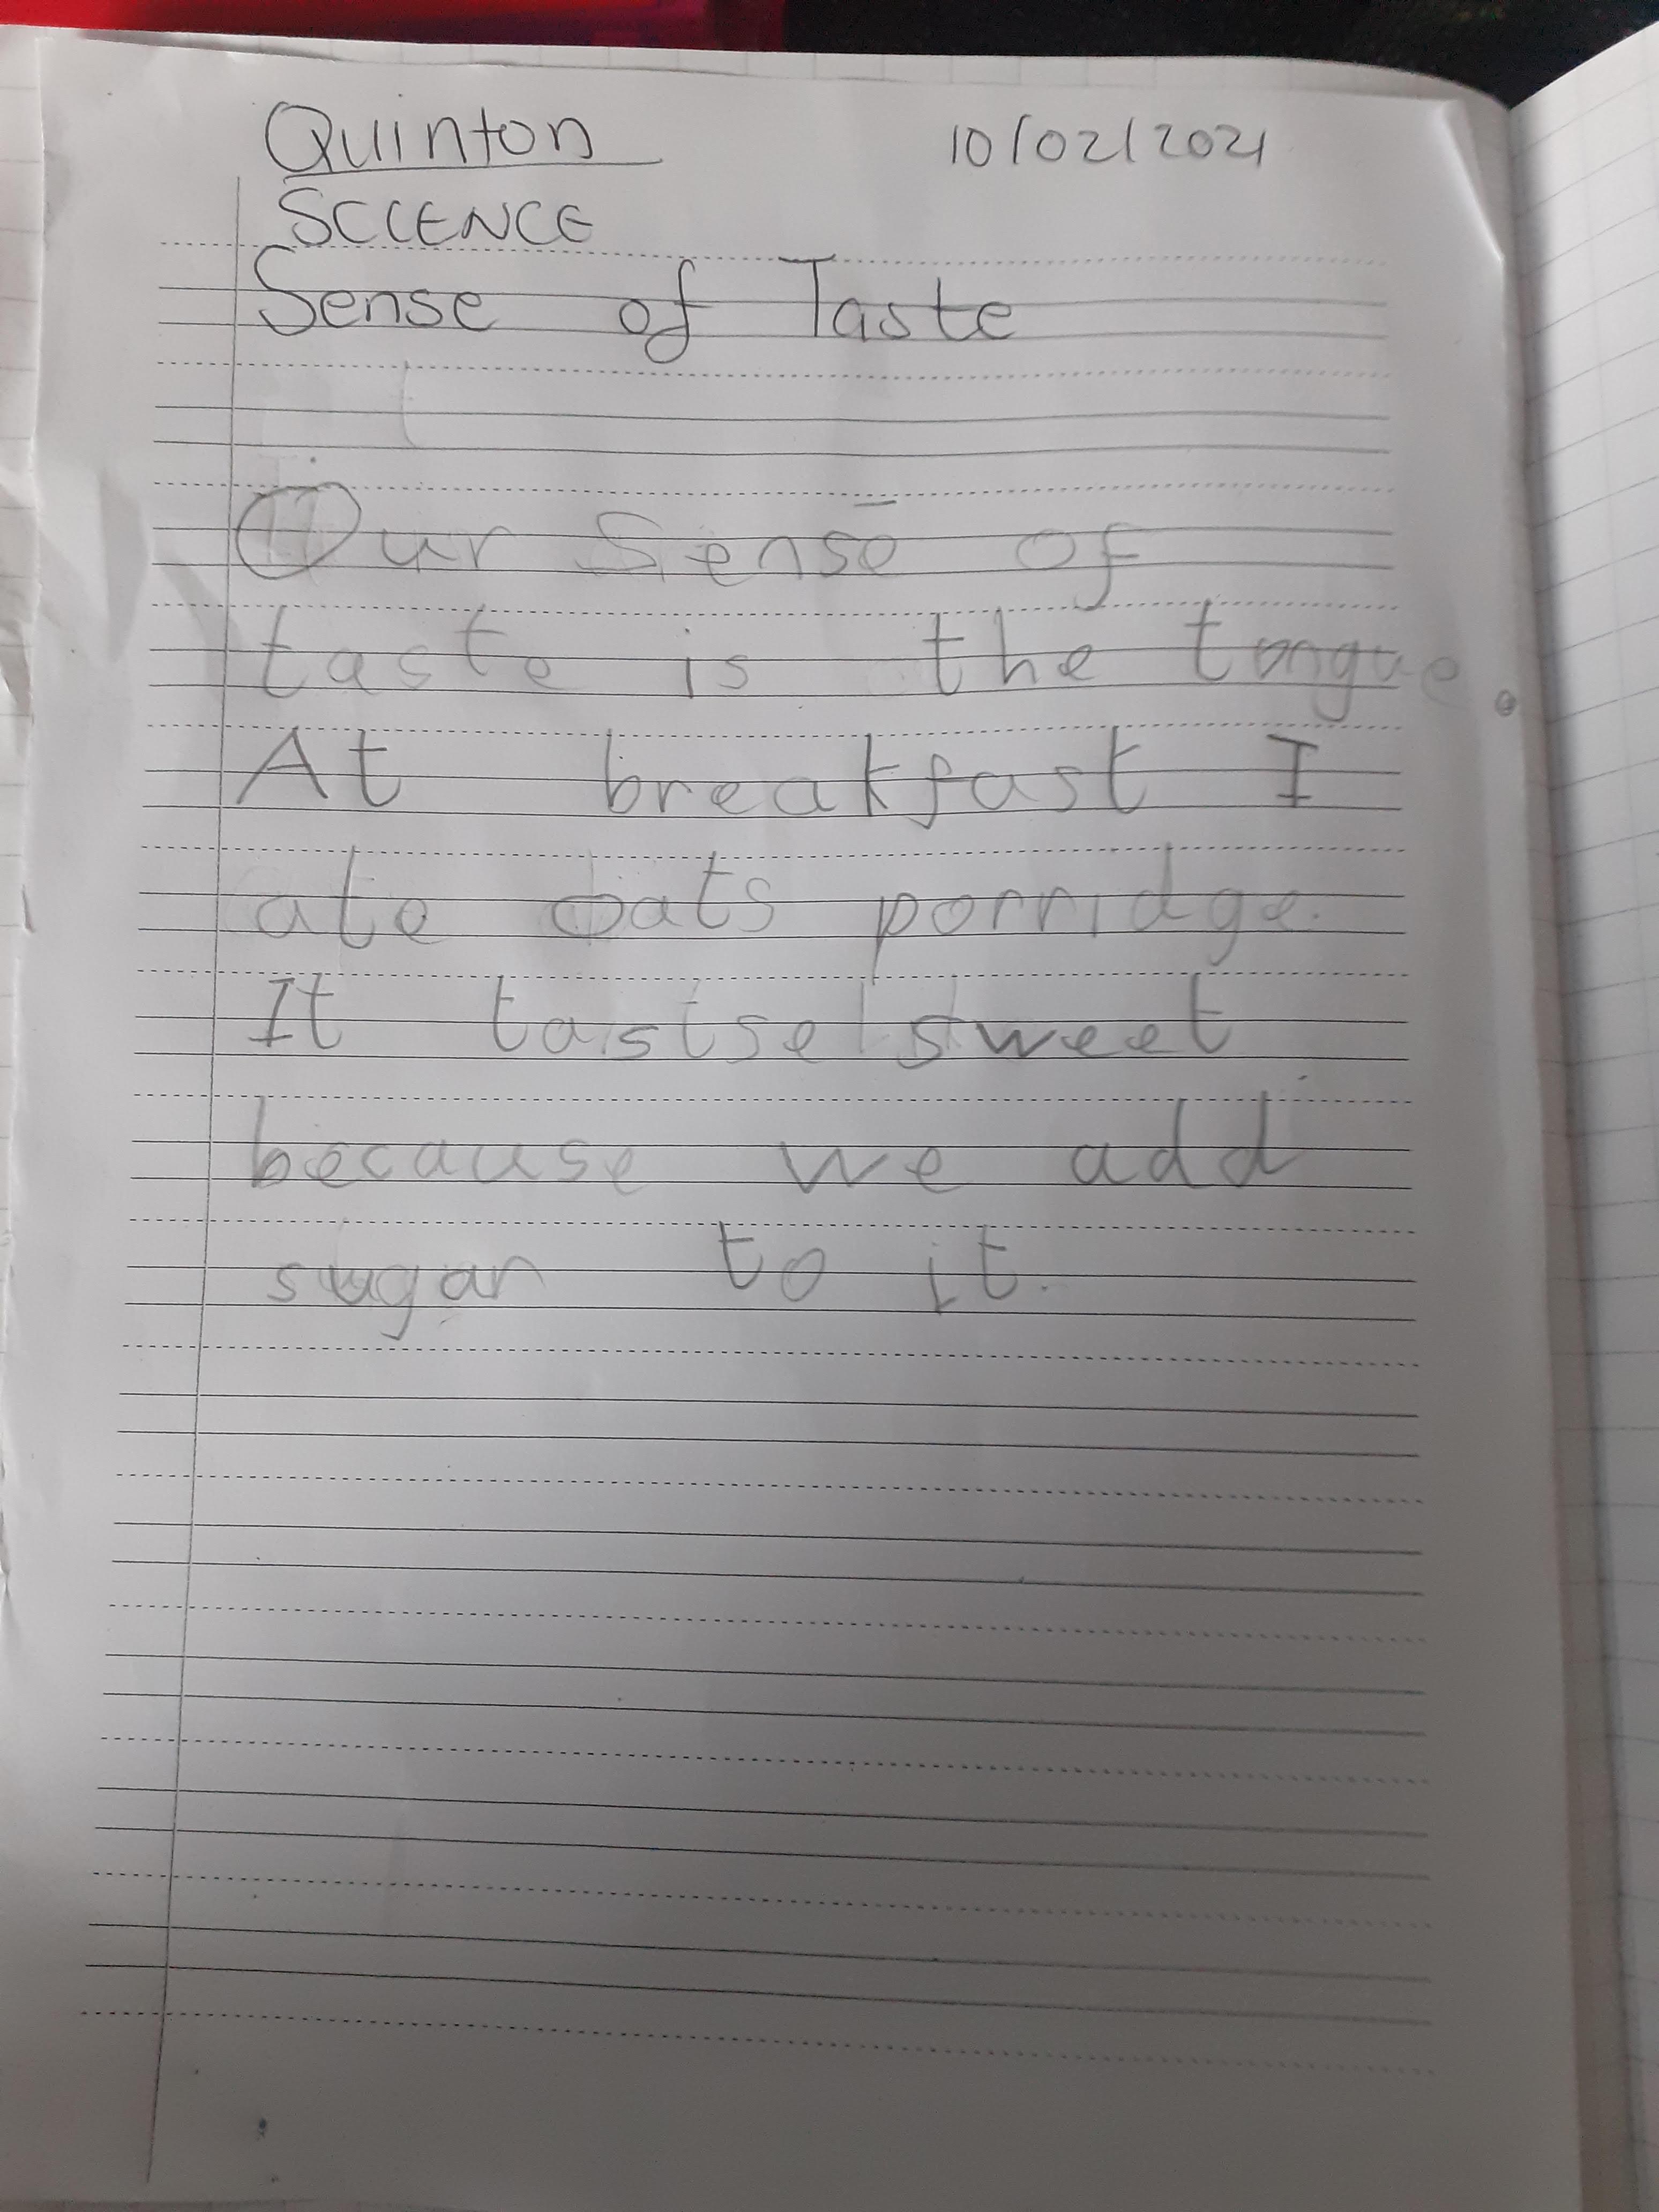 Quinton 10/02/2021
SCIENCE
Sense of Taste
Our Sense of
taste is the tongue.
At breakfast I
ate oats porridge.
It tastse sweet
because we add
sugar to it.